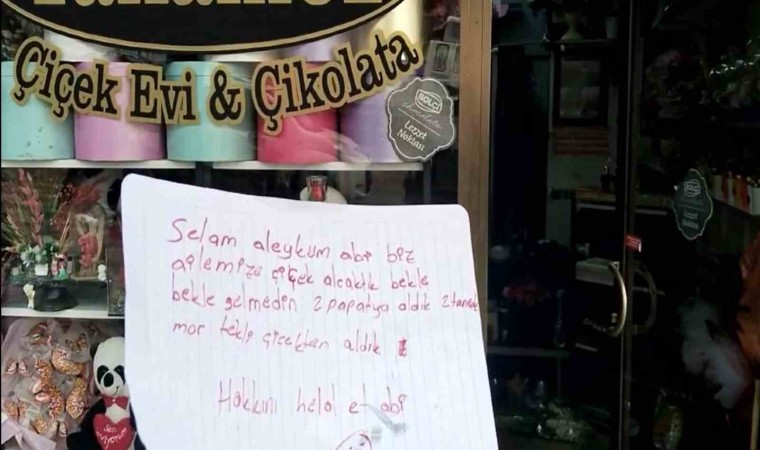 Çiçek Evi & Çikolata
BOLÇİ
chocolate
Lezzet
Noktası
Selam aleykum abi biz
ailemize çiçek alcaktık bekle
bekle gelmedin 2 papatya aldık 2 tane
mor tekli çiçekten aldık
Hakkını helal et abi